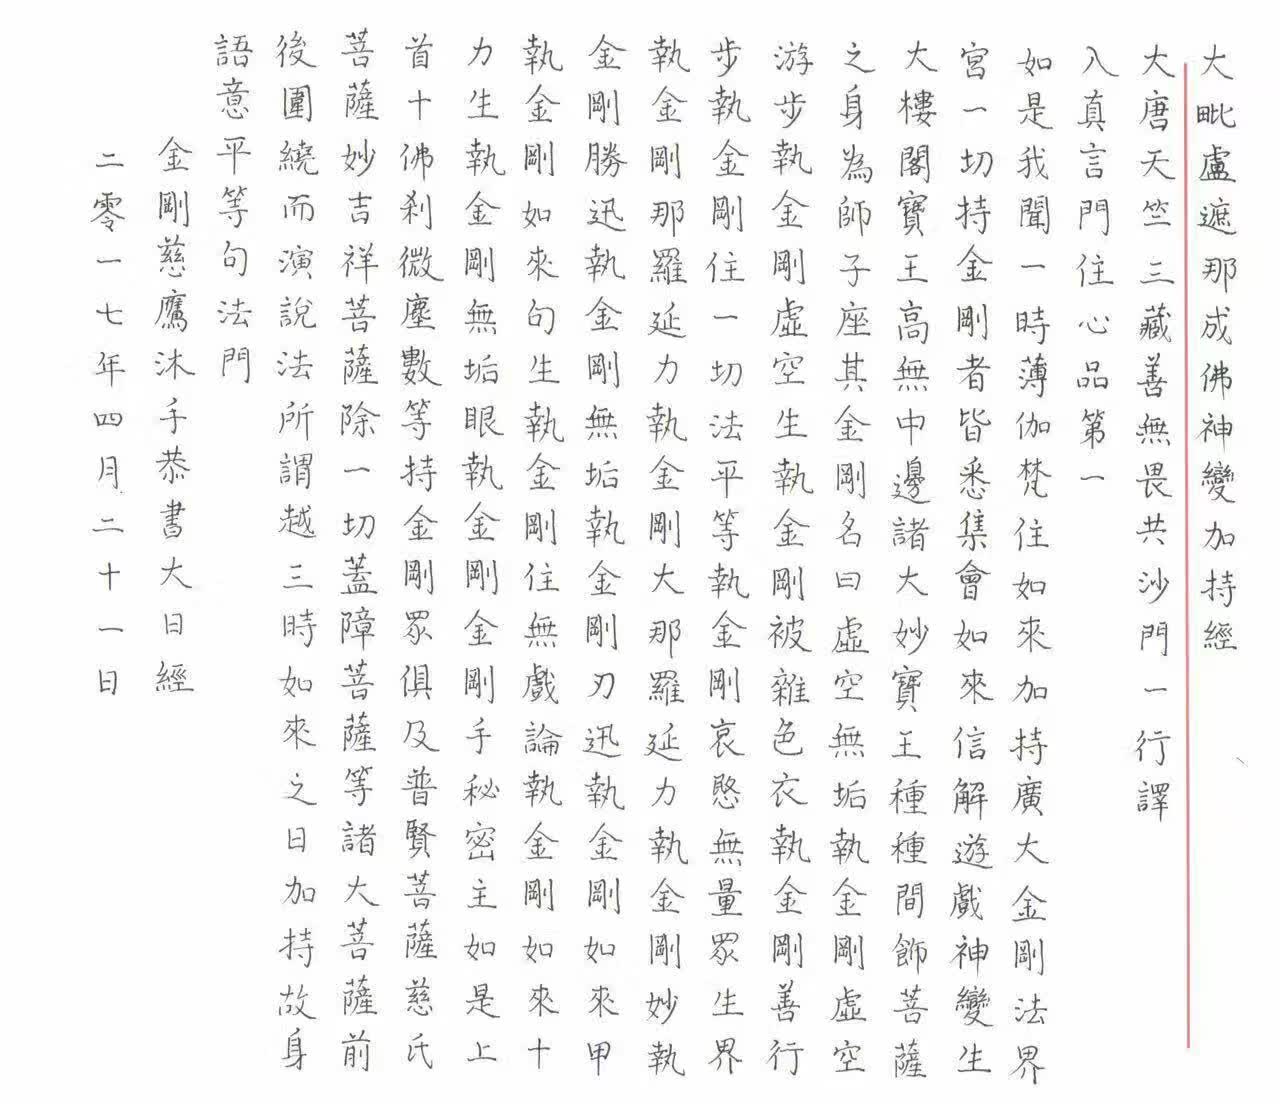 大毗盧遮那成佛神變加持經
大唐天竺三藏善無畏共沙門一行譯
入真言門住心品第一
如是我聞一時薄伽梵住如來加持廣大金剛法界
宮一切持金剛者皆悉集會如來信解遊戲神變生
大樓閣寶王高無中邊諸大妙寶王種種間飾菩薩
之身為師子座其金剛名曰虛空無垢執金剛虛空
游步執金剛虛空生執金剛被雜色衣執金剛善行
步執金剛住一切法平等執金剛哀愍無量眾生界
執金剛那羅延力執金剛大那羅延力執金剛妙執
金剛勝迅執金剛無垢執金剛刃迅執金剛如來甲
執金剛如來句生執金剛住無戲論執金剛如來十
力生執金剛無垢眼執金剛金剛手秘密主如是上
首十佛剎微塵數等持金剛眾俱及普賢菩薩慈氏
菩薩妙吉祥菩薩除一切蓋障菩薩等諸大菩薩前
後圍繞而演說法所謂越三時如來之日加持故身
語意平等句法門
金剛慈鷹沐手恭書大日經
二零一七年四月二十一日